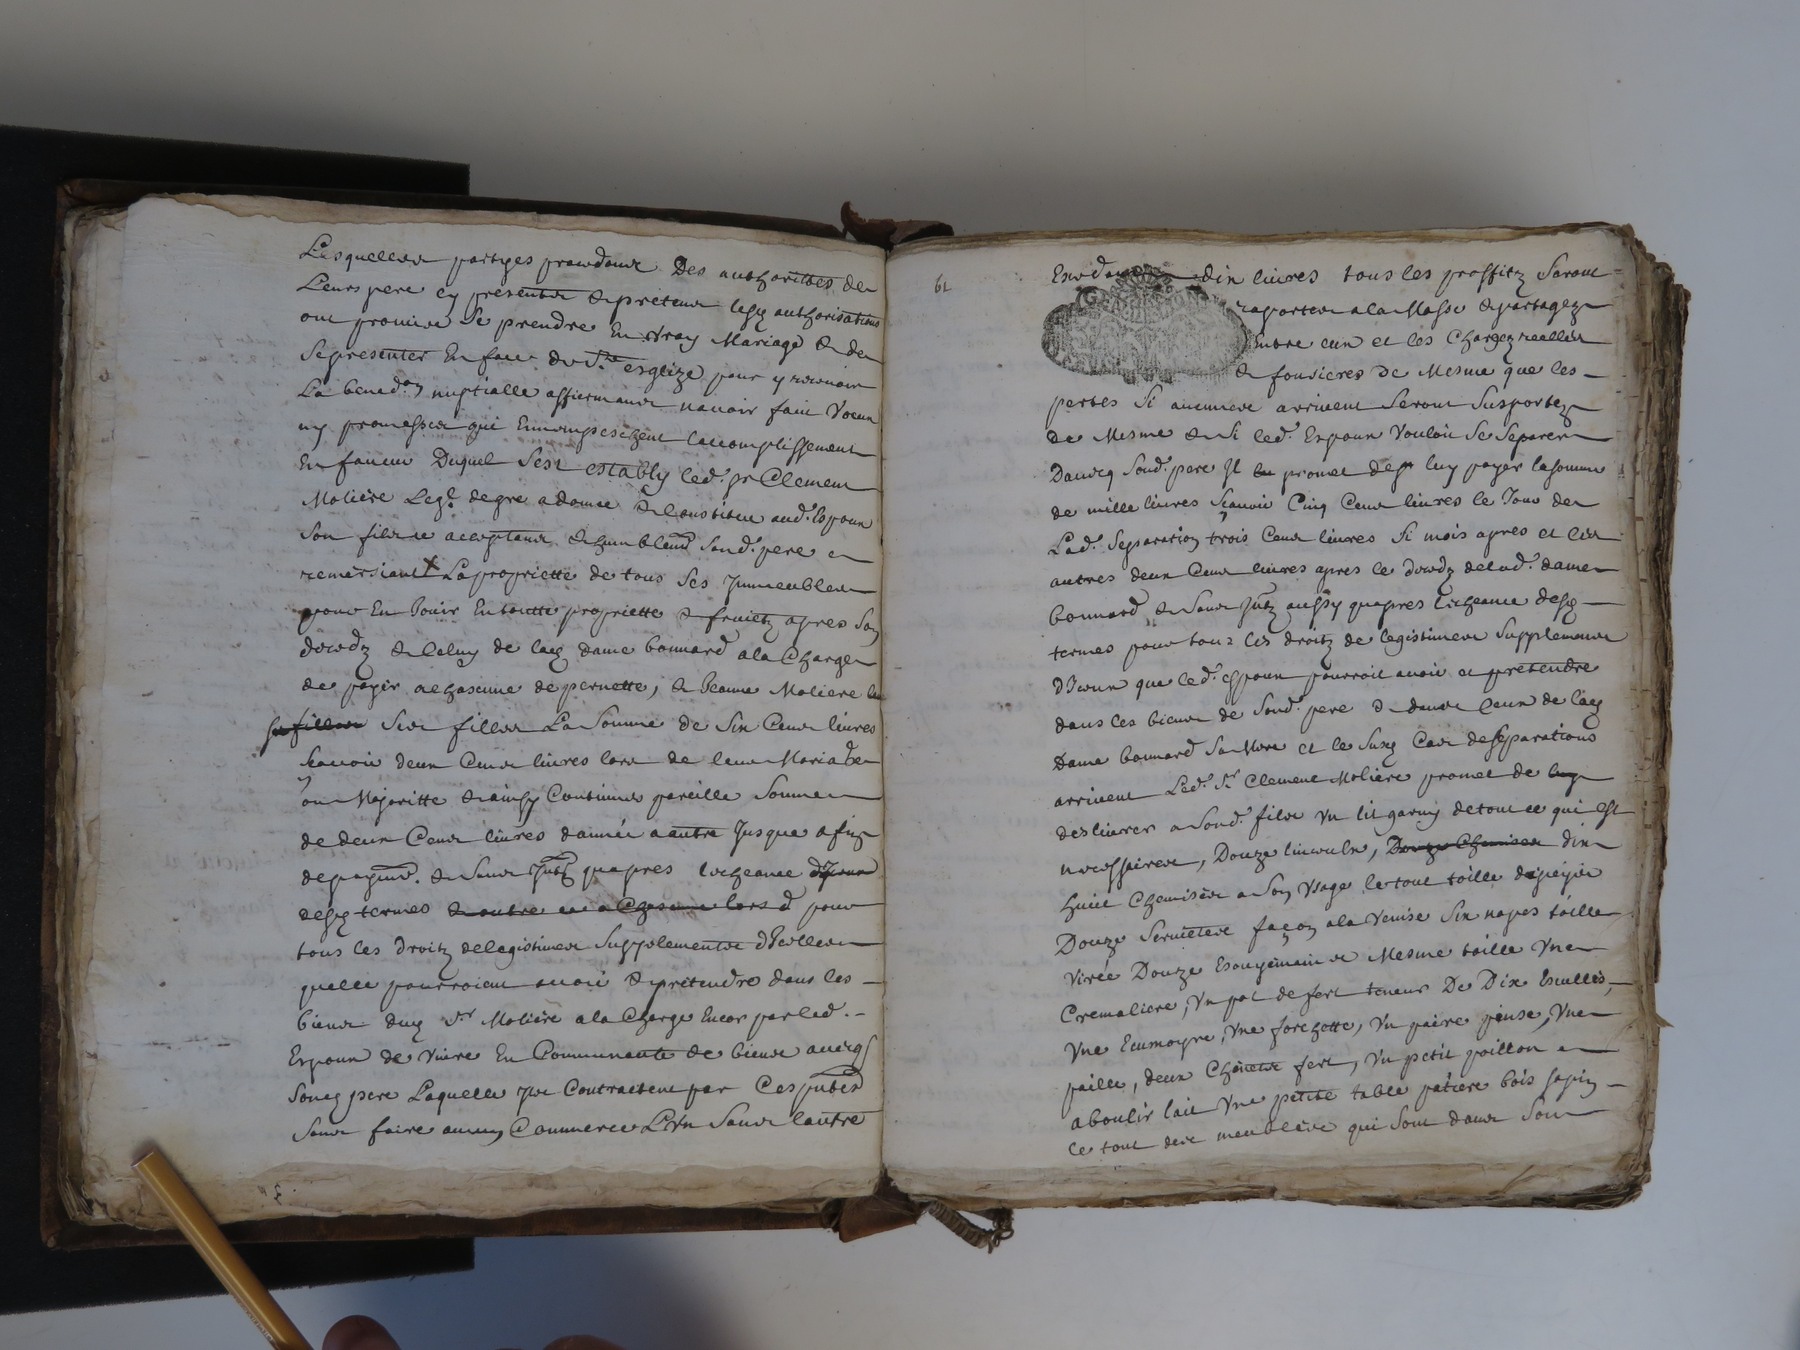 Lesquelles partyes procedant Des authorittes de
Leurs pere cy presentes & pretend lesq authorisations
ont promis de se prendre En vray Mariage & de
Se presenter En face de Ste esglize pour y recevoir
La bened.on nuptialle affirmant navoir fait Voeux
ny promesses qui Ennempeschent laccomplissement
En faveur Duquel Sest estably led. sr Clement
Moliere Leq.l de gre a donne & Constitue aud. Espoux
Son fils acceptant & humblemt Sond. pere
remersiant La propriette de tous Ses Immeubles
pour En Jouir En toutte propriette & fruictz apres Son
decedz & Celuy de lad dame bonnard a la Charge
de payer a chascune de pernette, & Jeanne Moliere
sa filles Ses filles La Somme de Six Cens livres
scavoir deux Cens livres lors de leur Mariage
ou Majoritte & ainsy Continuer pareille Somme
de deux Cens livres dannée a autre Jusque a fin
de payemt. & Sans Intz quapres lescheance
desq termes & outre ce a Chascune lors d pour
tous les droitz de legistimes Supplementes dIcelles
quelle pourroient avoir & pretendre dans les
biens dud Sr Moliere a la Charge Encor par led.
Espoux de Vivre En Communauté de biens avecq
Sond pere Laquelle Ils Contractent par Ces pntes
Sans faire aucun Commerce L'Un Sans lautre
61
Excedant dix livres tous les proffitz Seront
raportes a la Masse & partagez
Entre eux et les Charges reelles
& foncieres de Mesme que les
pertes Si aucunes arrivent Seront Susportez
de Mesme & Si led. Espoux Vouloit Se Separer
Davecq Sond. pere Il promet de luy payer la somme
de mille livres Scavoir Cinq Cens livres le Jour de
Lad. Separation trois Cens livres Si mois apres et les
autres deux Cens livres apres le decedz de lad. dame
bonnard & Sans Intz aussy quapres lescheance desq
termes pour tous les droitz de legistimes Supplement
dIceux que led. espoux pourroit avoir et pretendre
dans les biens de Sond. pere & dans Ceux de lad
Dame bonnard Sa Mere et le Susd Cas de Separations
arrivent Led. Sr Clement Moliere promet de luy
deslivrer a Sond. fils un lit garny de tout ce qui est
necessaires, Douze linceulx, Douze Chemises dix
huict Chemises a Son Usage le tout toille
Douze Serviettes façon a la Venise Six napes toille
Virée Douze Essuyemains Mesme toille Une
Cremaliere, Un pot de fert teneur De Dix Escullés,
Une Ecumoyre, Une forchette, Un paire pinse, Une
paille, deux Chenets fert, Un petit poillon
a boulir lait Une petite table patiere bois sapin
le tout des meubles qui Sont dans Son